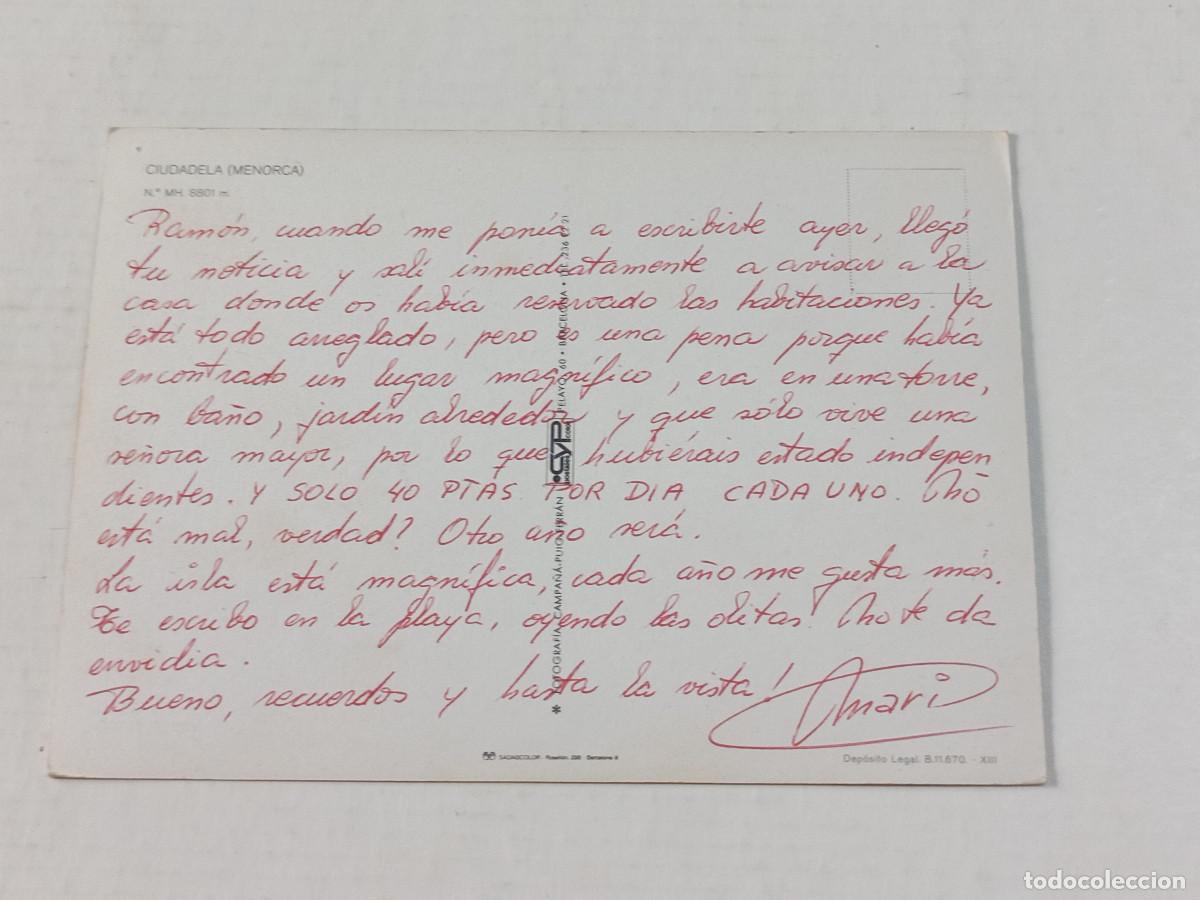 CIUDADELA (MENORCA)
N.º MH. 8801 m.
Ramón, cuando me ponía a escribirte ayer, llegó
tu noticia y salí inmediatamente a avisar a la
casa donde os había reservado las habitaciones. Ya
está todo arreglado, pero es una pena porque había
encontrado un lugar magnífico, era en una torre,
con baño, jardín alrededor y que sólo vive una
señora mayor, por lo que hubiérais estado indepen
dientes. Y SOLO 40 PTAS. POR DIA CADA UNO. No
está mal, verdad? Otro año será.
La isla está magnífica, cada año me gusta más.
Te escribo en la playa, oyendo las olitas! No te da
envidia.
Bueno, recuerdos y hasta la vista!
Mari
* FOTOGRAFÍA CAMPAÑÁ-PUIG FERRÁN
CYP
PELAYO, 60 • BARCELONA • TEL. 236
SADAGCOLOR - Rosellón, 298 - Barcelona
Depósito Legal. B.11.670. - XIII
todocoleccion